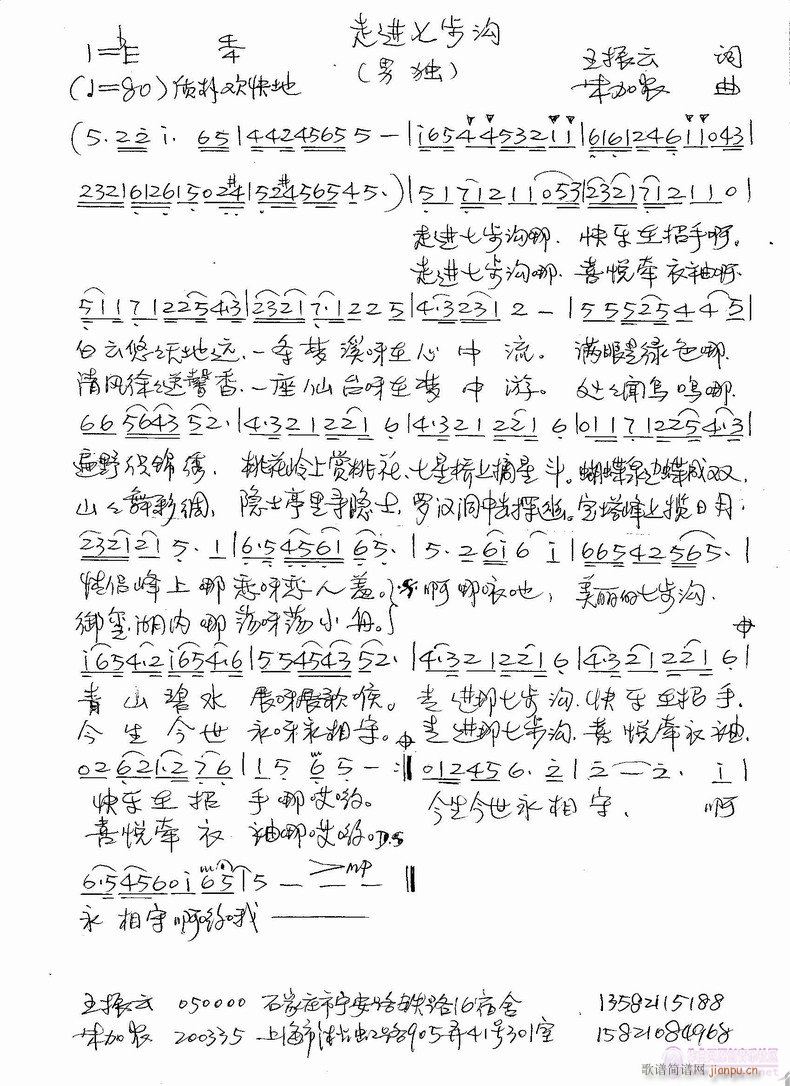 走进七步沟
1=♭E 4/4 (男独) 王振云 词
(♩=80) 质朴欢快地 曲
(5·22i· 65|44245655-|i654453211|61612461 1043|
232161261502#4|5 2#456545·)|517121 1053|2321712110|
走进七步沟哪. 快乐在招手啊。
走进七步沟哪. 喜悦牵衣袖啊.
511712254·3|23217·12225|4·32312-|5552544 5|
白云悠悠天地远.一条梦溪呀在心中流。满眼是绿色哪.
清风徐徐送馨香.一座仙台呀在梦中游。处处闻鸟鸣哪.
66564352·|4·321221 6|4·321221 6|011712254·3|
遍野织锦绣. 桃花岭上赏桃花.七星桥上摘星斗.蝴蝶泉边蝶成双.
山山舞彩绸. 隐士亭里寻隐士.罗汉洞中去探幽.宝塔峰上揽日月.
2321215·1|6·5456165·|5·26i6i|66542565·|
情侣峰上哪恋呀恋人羞。啊哪咏地, 美丽的七步沟.
御玺湖内哪荡呀荡小舟。
i654·2i654·6|5545 4352·|4·321221 6|4·321221 6|
青山碧水 展呀展歌喉。走进那七步沟.快乐在招手.
今生今世 永呀永相守。走进那七步沟.喜悦牵衣袖.
02621·276|15 65-:‖012456·2|2-2·i|
快乐在招 手哪哎哟。 今生今世永相守. 啊
喜悦牵衣 袖哪哎哟。D.S
6·54560i65|5---‖
mp
永相守啊哟哦
王振云 050000 石家庄市宁安路铁路16宿舍 13582115188
200335 905弄41号301室 15821084968
歌谱简谱网
jianpu.cn